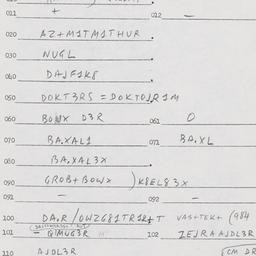 011 + 012 –
020 AZ+M1TM1THUR.
030 NUGL
040 DAJF1K8
050 DOKT3RS = DOKTOJR1M
060 BOWX D3R 061 0
070 BA.XAL1 071 BA.XL
080 BA,XAL3X
090 GROB+BOWX )K8EL83X
091 – 092 –
100 DA.R/OWZG81TR1R+T VAS+TEK+ (984
101 – GIMUG3R 102 IEJRAAJDL3R
110 AJDL3R